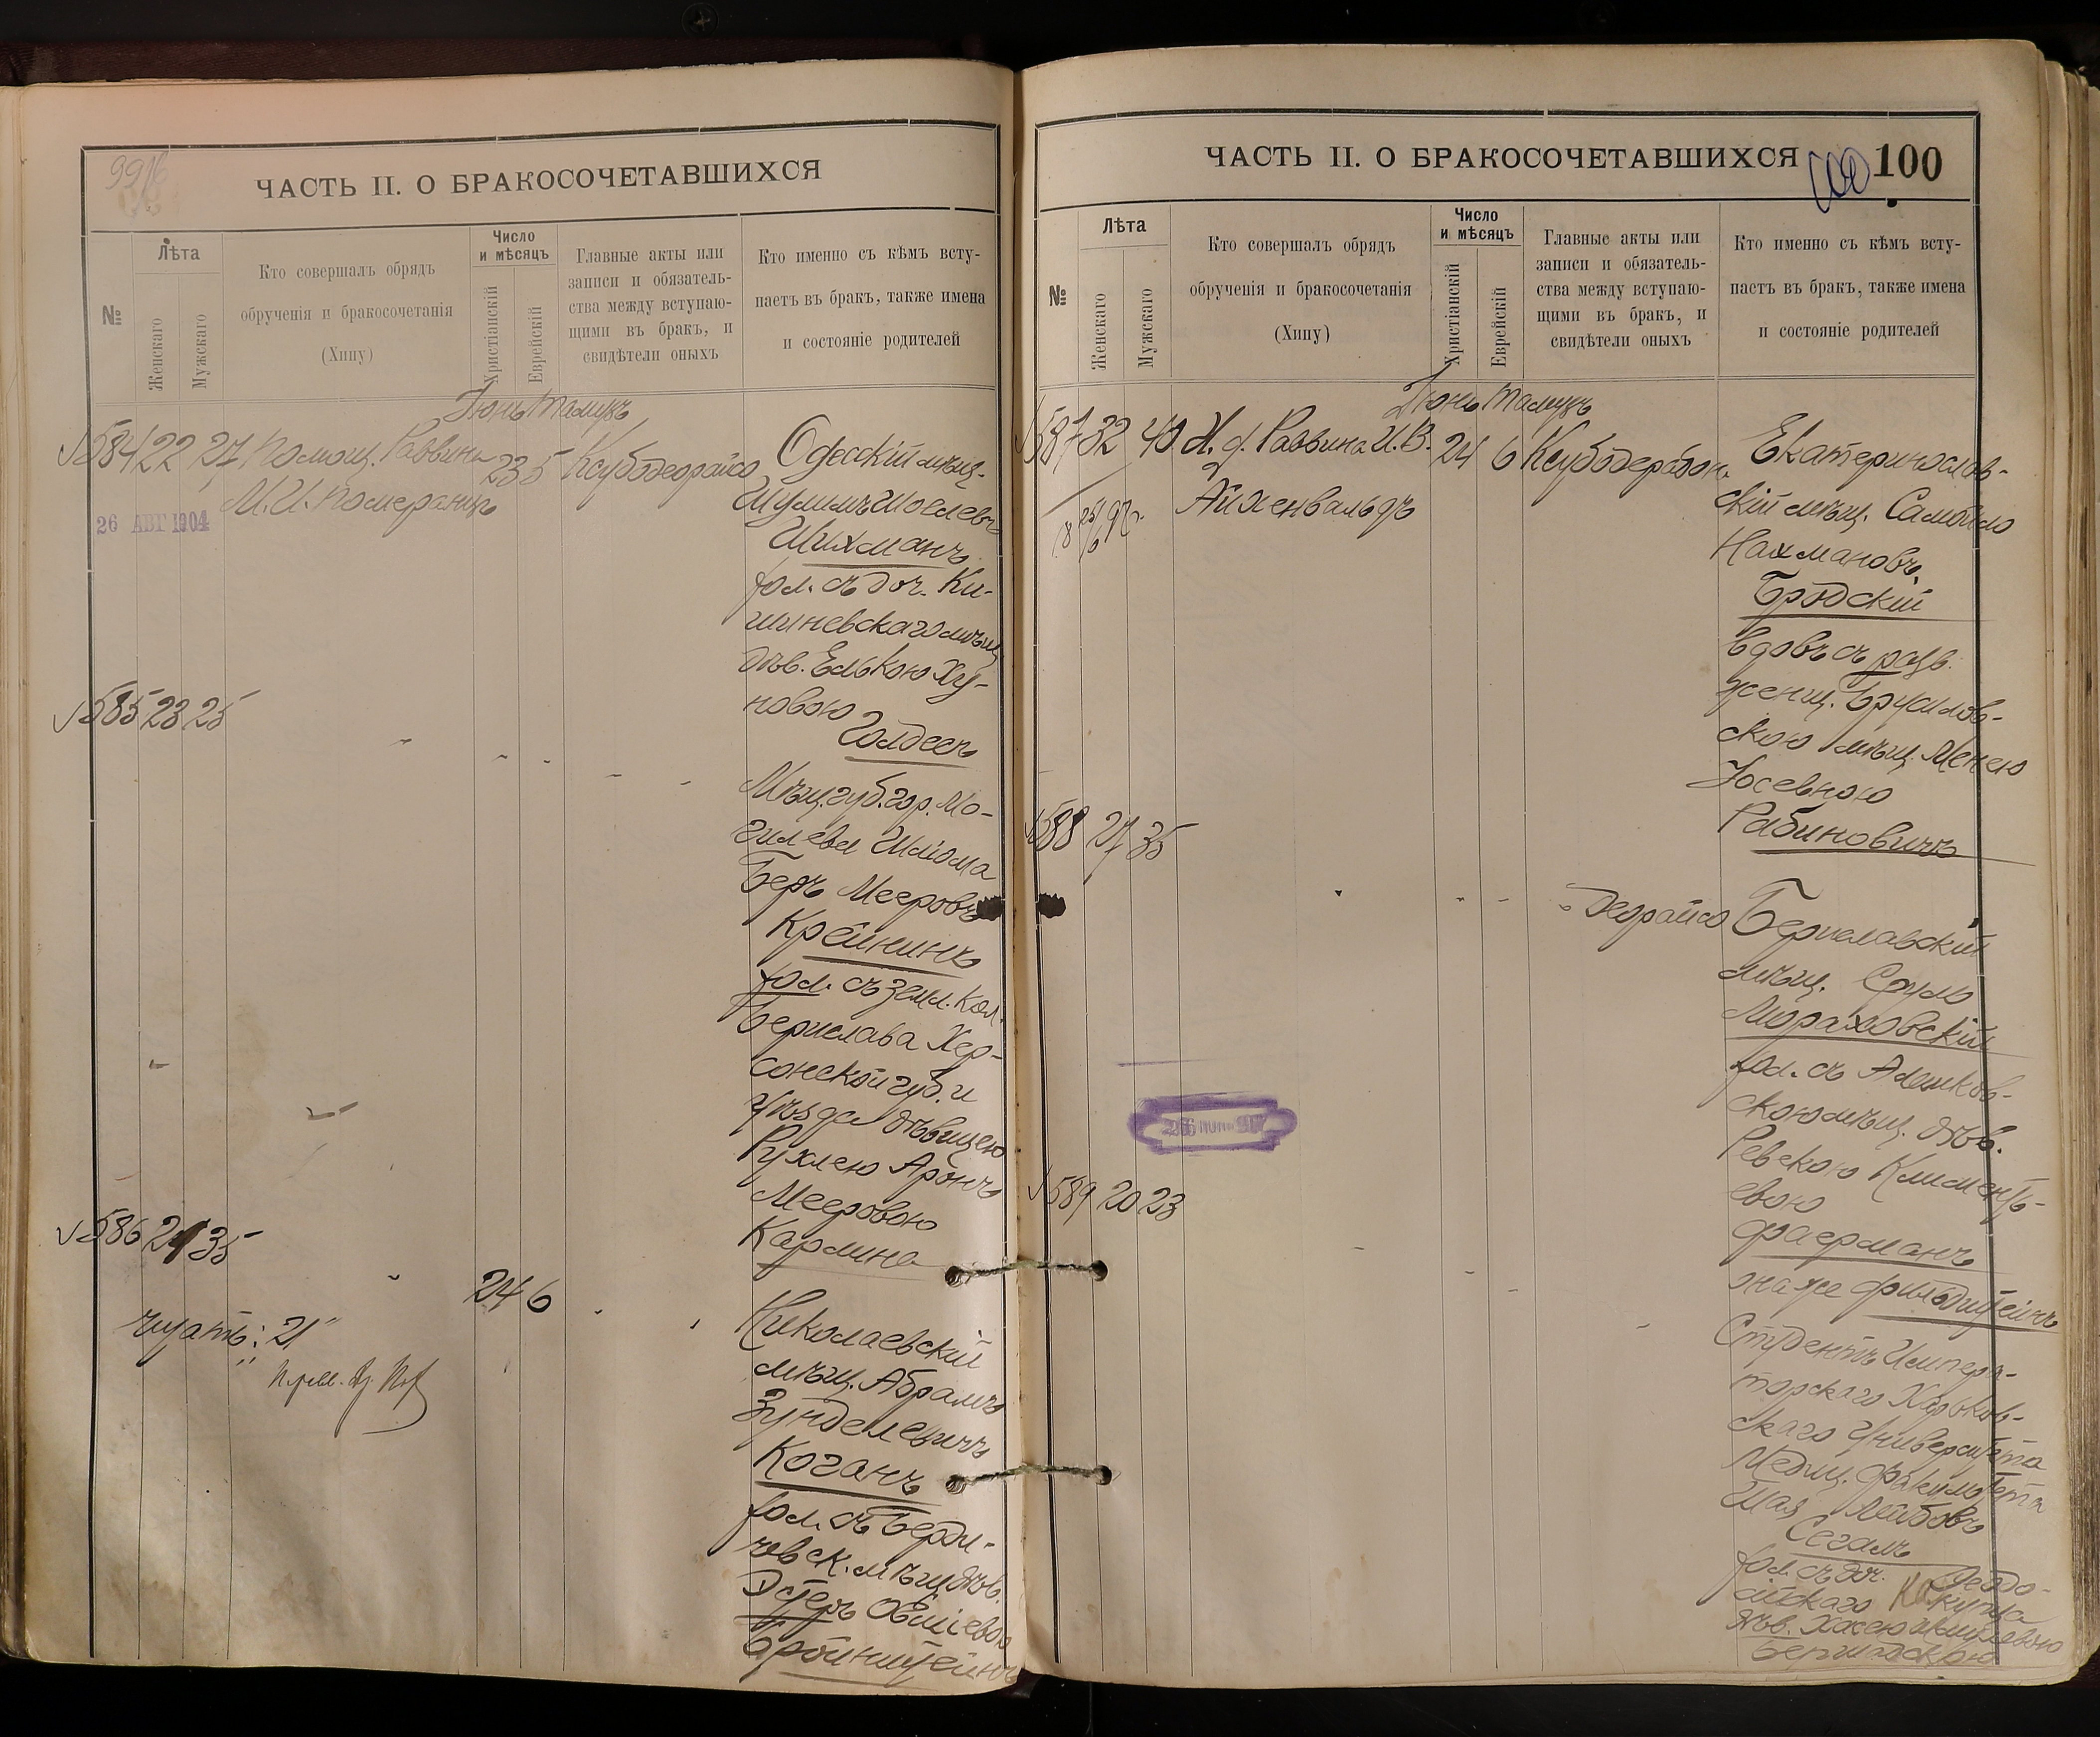 ЧАСТЬ II. О БРАКОСОЧЕТАВШИХСЯ
№
Лѣта
Женскаго
Мужскаго
Кто совершалъ обрядъ
обрученія и бракосочетанія
(Хипу)
Число
и мѣсяцъ
Христіанскій
Еврейскій
Главные акты или
записи и обязатель-
ства между вступаю-
щими въ бракъ, и
свидѣтели оныхъ
Кто именно съ кѣмъ всту-
паетъ въ бракъ, также имена
и состояніе родителей
Іюнь Тамузъ
584 22 27 Помощ. Раввина 23 5 Ксубодеорайсо
М. И. Померанцъ
26 АВГ 1904
Одесскій мѣщ.
Шулимъ Шоелевъ
Шихманъ
хол. съ доч. Ки-
шиневскаго мѣщ
дѣв. Елькою Ху-
новою
Голдесъ
585 23 25
Мѣщ. губ. гор. Мо-
гилева Шлиома
Беръ Мееровъ
Крейнинъ
хол. съ земл. кол.
Берислава Хер-
сонской губ. и
уѣзда дѣвицею
Рухлею Аронъ
Мееровою
Кармина
586 21 35
24 6
читать: 21
Николаевскій
мѣщ. Абрамъ
Зунделевичъ
Коганъ
хол. съ Берди-
чевск. мѣщ дѣв.
Эстеръ Овшіевою
Бройнштейнъ
ЧАСТЬ II. О БРАКОСОЧЕТАВШИХСЯ
100 100
№
Лѣта
Женскаго
Мужскаго
Кто совершалъ обрядъ
обрученія и бракосочетанія
(Хипу)
Число
и мѣсяцъ
Христіанскій
Еврейскій
Главные акты или
записи и обязатель-
ства между вступаю-
щими въ бракъ, и
свидѣтели оныхъ
Кто именно съ кѣмъ всту-
паетъ въ бракъ, также имена
и состояніе родителей
Іюнь Тамузъ
587 32 40 И. д. Раввина И. В. 24 6
Айхенвальдъ
Екатеринослав-
скій мѣщ. Самойло
Нахмановъ
Бродскій
вдовъ съ разв.
женщ. Брусилов-
скою мѣщ. Менею
Іосевною
Рабиновичъ
588 27 35
деорайсо
Бериславскій
мѣщ. Сруль
Мораховскій
хол. съ Алешков-
скою мѣщ. дѣв.
Ревекою Клименть-
евою
Фаерманъ
она же Фильдштейнъ
589 20 23
Студентъ Импера-
торскаго Харьков-
скаго Университета
Медиц. Факультета
Шая Лейбовъ
Сегаль
хол. съ доч. Феодо-
сійскаго купца
дѣв. Хасею
Бершадскою